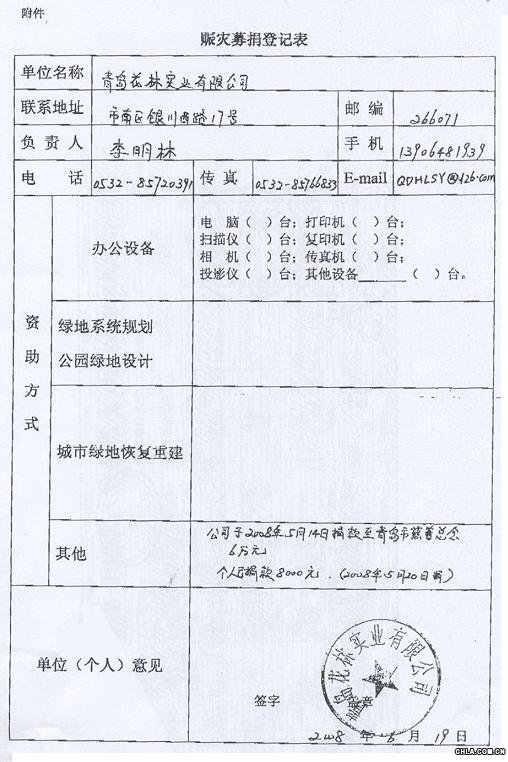 附件
赈灾募捐登记表
单位名称 青岛花林实业有限公司
联系地址 市南区银川西路17号 邮 编 266071
负 责 人 李明林 手 机 13906481939
电 话 0532-85720391 传 真 0532-85766833 E-mail QDHLSY@126.com
资助方式
办公设备
电 脑（ ）台；打印机（ ）台；
扫描仪（ ）台；复印机（ ）台；
相 机（ ）台；传真机（ ）台；
投影仪（ ）台；其他设备______（ ）台。
绿地系统规划
公园绿地设计
城市绿地恢复重建
其他
公司于2008年5月14日捐款至青岛市慈善总会
6万元
个人捐款8000元．(2008年5月20日捐)
单位（个人）意见
青岛花林实业有限公司
签字 盖章
2008 年 6 月 19 日
CHLA.COM.CN